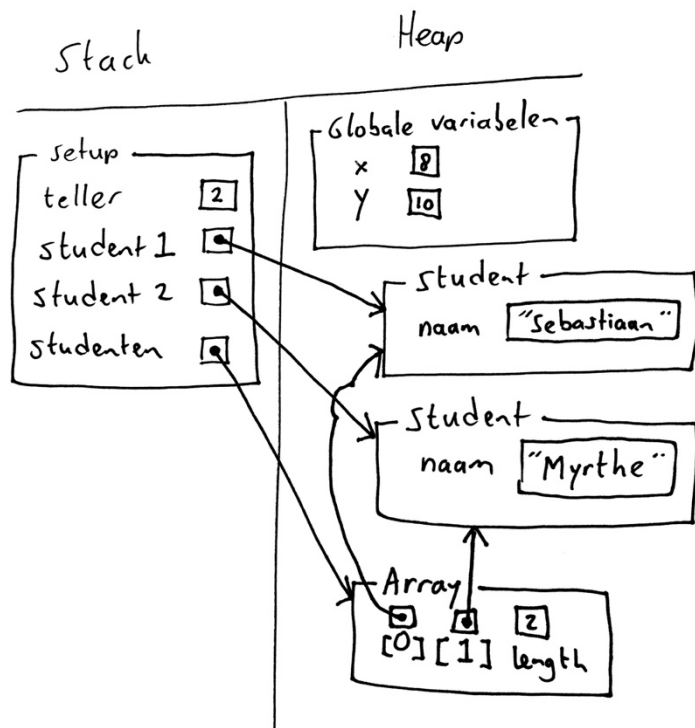 Stack
Heap
setup
teller 2
student 1
student 2
studenten
Globale variabelen
x 8
y 10
student
naam "Sebastiaan"
student
naam "Myrthe"
Array
2
[0] [1] length